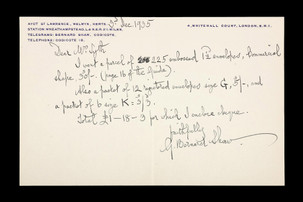 AYOT ST LAWRENCE, WELWYN, HERTS.
4, WHITEHALL COURT, LONDON, S.W.1.
STATION: WHEATHAMPSTEAD, L.& N.E.R. 2¼ MILES.
TELEGRAMS: BERNARD SHAW, CODICOTE.
TELEPHONE: CODICOTE 18.
3rd Dec. 1935
Dear Mr
I want a parcel of 225 embossed 1½ envelopes, Commercial
shape 30/- (page 16 of the Guide).
Also a packet of 12 registered envelopes size G, 5/-, and
a packet of 6 size K = 3/3.
Total £1-18-3 for which I enclose cheque.
faithfully
G. Bernard Shaw